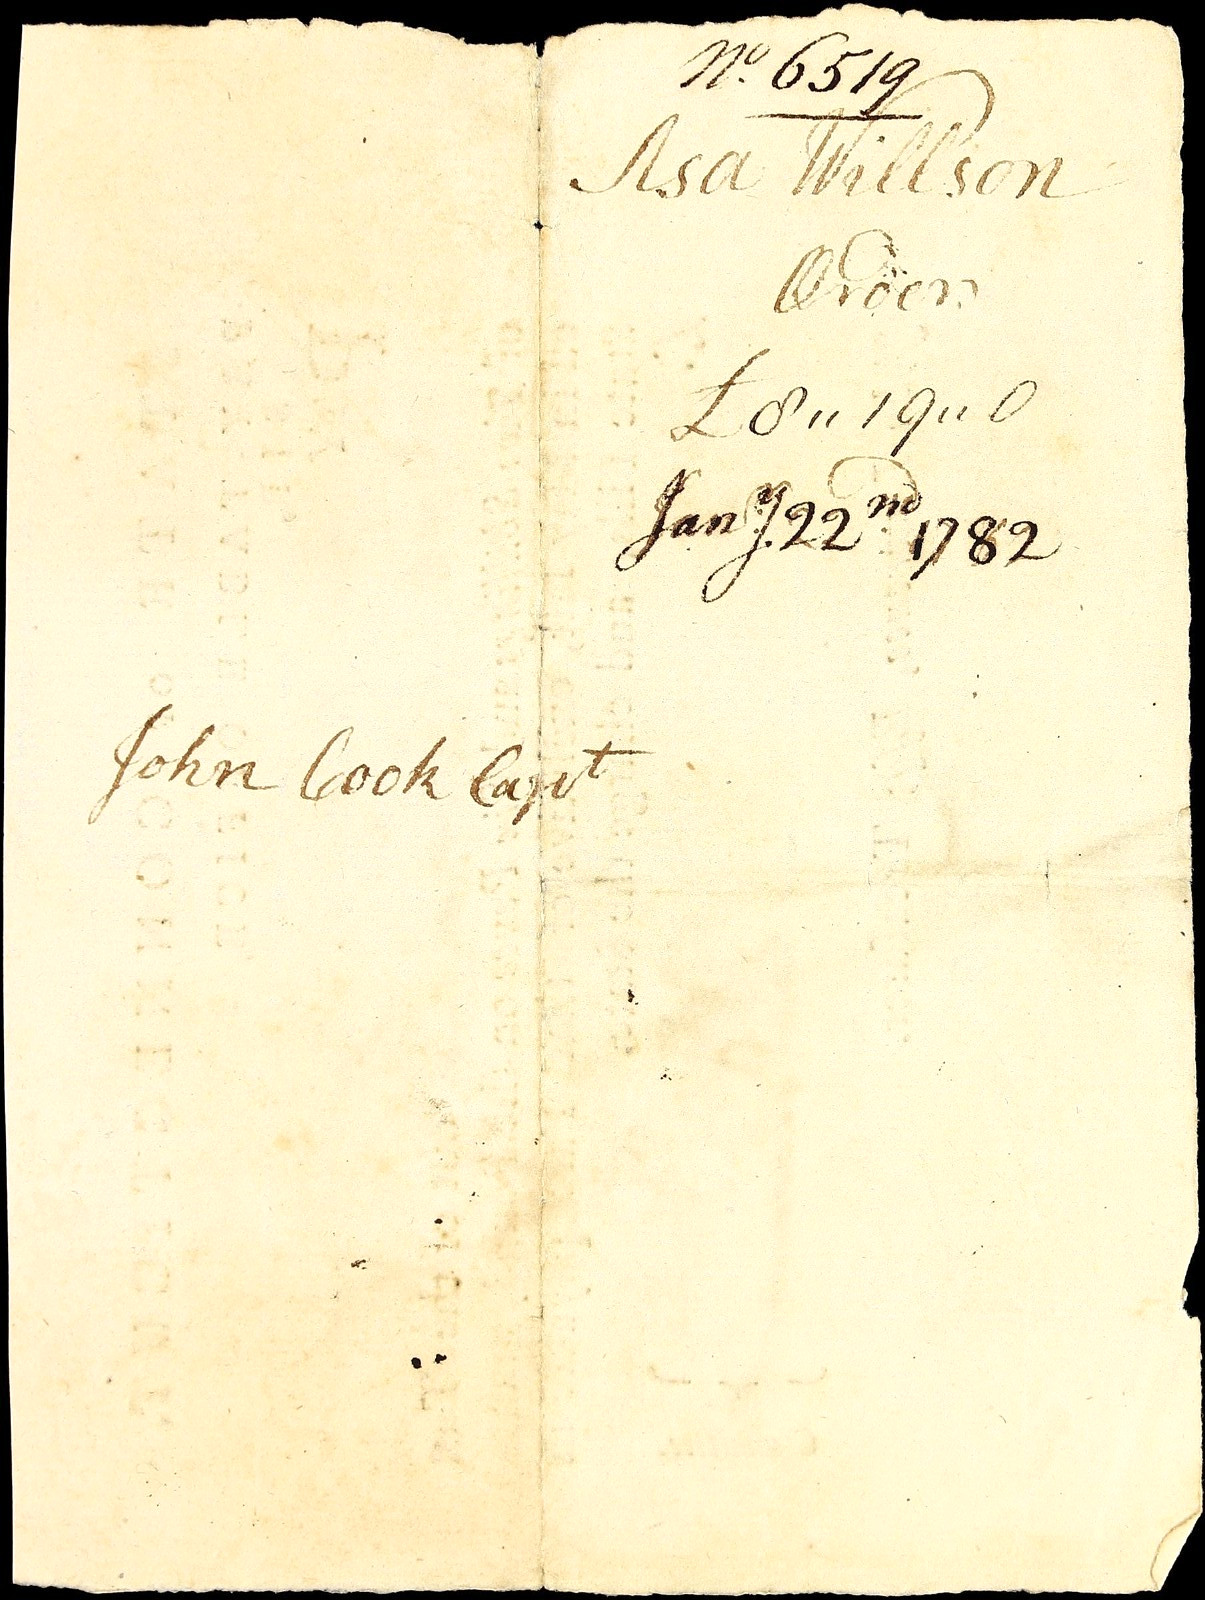 No. 6519
Asa Willson
Order
£8,,19,,0
Jany. 22nd 1782
John Cook Capt